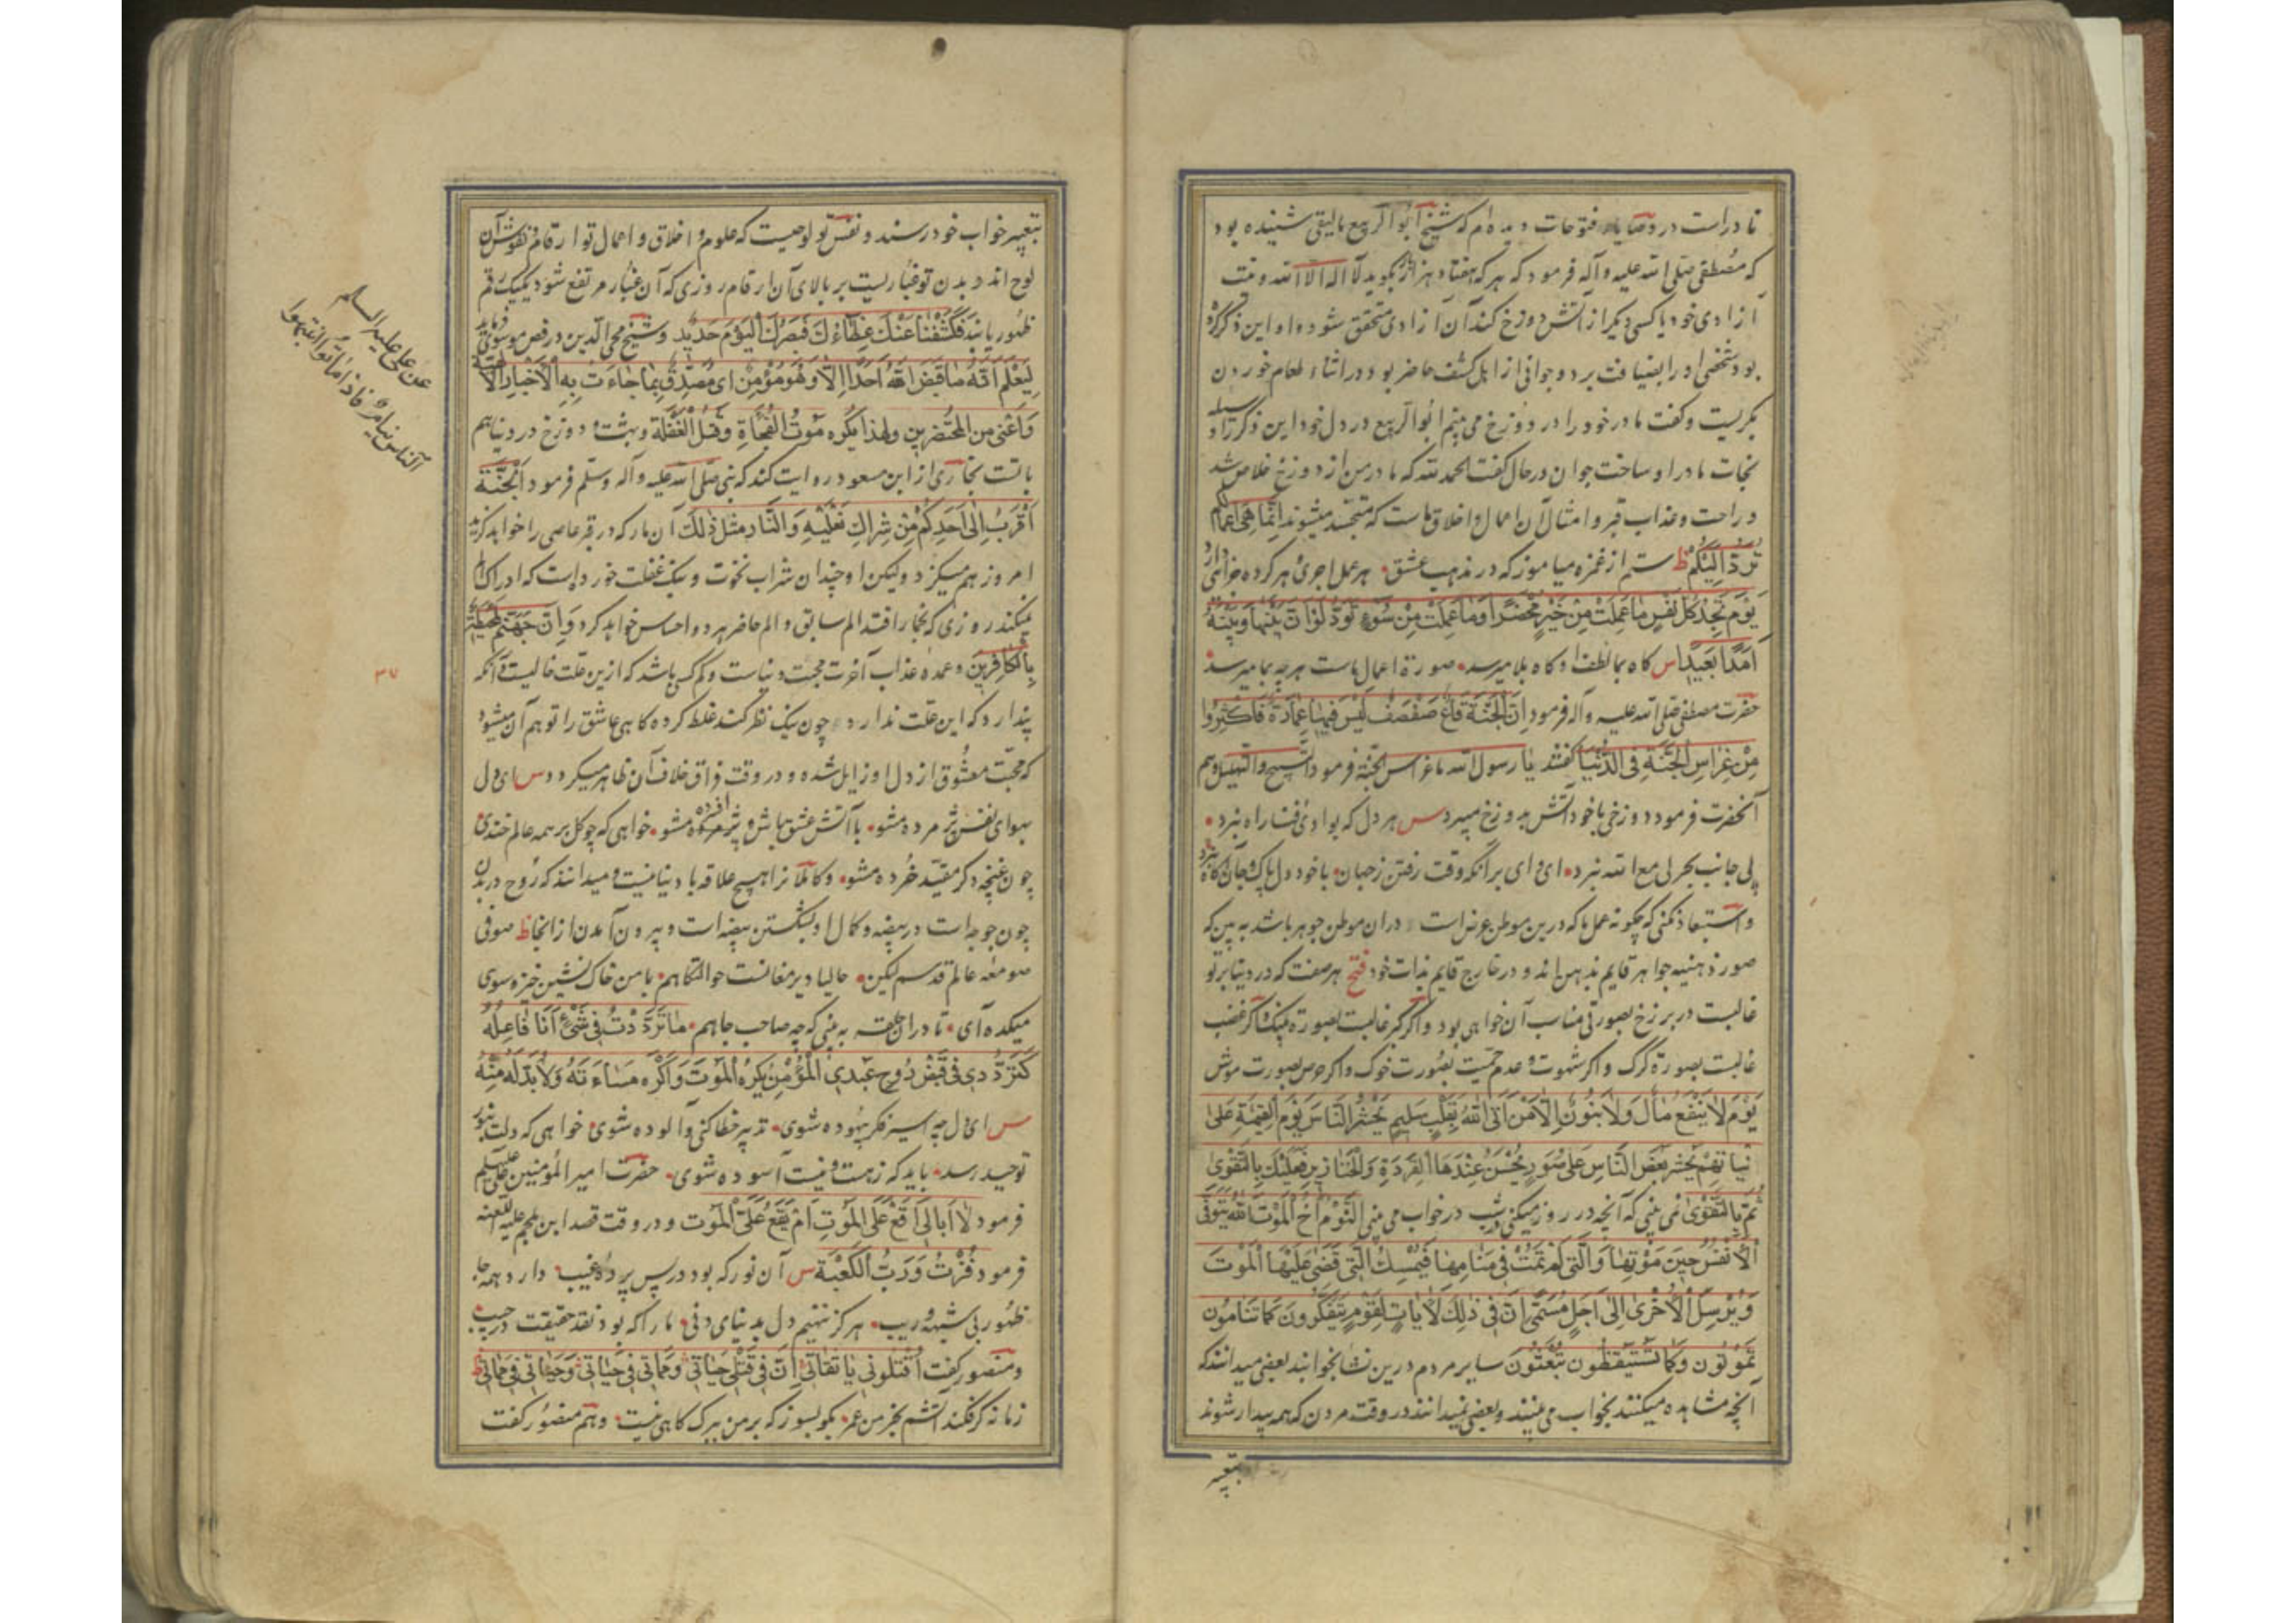 نادر است در وصایای فتوحات دیده‌ام که شیخ ابوالربیع مالیقی شنیده بود
که مصطفی صلی الله علیه و آله فرمود که هر که هفتاد هزار بار بگوید لا اله الا الله و نیت
آزادی خود یا کسی دیگر از آتش دوزخ کند آن آزادی متحقق شود و او این ذکر کرده
بود شخصی او را بضیافت برد و جوانی از اهل کشف حاضر بود در اثناء طعام خوردن
بگریست و گفت مادر خود را در دوزخ می بینم ابوالربیع در دل خود این ذکر را وسیله
نجات مادر او ساخت جوان در حال گفت الحمد لله که مادر من از دوزخ خلاص شد
و راحت و عذاب قبر و امثال آن اعمال و اخلاق ماست که متجسد میشوند انما هی اعمالکم
ترد الیکم ظ ستم از غمزه میاموز که در مذهب عشق هر عمل اجری و هر کرده جزائی دارد
یوم تجد کل نفس ما عملت من خیر محضرا و ما عملت من سوء تود لو ان بینها و بینه
امدا بعیدا س گاه بما لطف و گاه بلا میرسد صورة اعمال ماست هرچه بما میرسد
حضرت مصطفی صلی الله علیه و آله فرمود ان الجنة قاع صفصف لیس فیها عمارة فاکثروا
من غراس الجنة فی الدنیا گفتند یا رسول الله ما غراس الجنة فرمود التسبیح و التهلیل و هم
آنحضرت فرمود دوزخی با خود آتش بدوزخ میبرد س هر دل که بوادی فنا راه نبرد
پی جانب بحر لی مع الله نبرد ای وای بر آنکه وقت رفتن ز جهان با خود دل پاک و جان آگاه نبرد
و استبعاد نکنی که چگونه عملها که درین موطن عرض است در آن موطن جوهر باشد به بین که
صور ذهنیه جواهر قایم بذهن اند و در خارج قایم بذات خود فتح هر صفت که در دنیا بر تو
غالبست در برزخ بصورتی مناسب آن خواهی بود و اگر کبر غالبست بصورة پلنگ و اگر غضب
غالبست بصورة گرگ و اگر شهوت و عدم حمیت بصورت خوک و اگر حرص بصورت موش
یوم لا ینفع مال و لا بنون الا من اتی الله بقلب سلیم یحشر الناس یوم القیمة علی
نیاتهم یحشر بعض الناس علی صور یحسن عندها القردة و الخنازیر فعلیک بالتقوی
ثم بالتقوی نمی بینی که آنچه در روز میکنی شب در خواب می بینی النوم اخ الموت الله یتوفی
الانفس حین موتها و التی لم تمت فی منامها فیمسک التی قضی علیها الموت
و یرسل الاخری الی اجل مسمی ان فی ذلک لایات لقوم یتفکرون کما تنامون
تموتون و کما تستیقظون تبعثون سایر مردم درین نشا بخوابند بعضی میدانند که
آنچه مشاهده میکنند بخواب می بینند و بعضی نمیدانند در وقت مردن که همه بیدار شوند
بتعبیر
بتعبیر خواب خود رسند و نفس تو لوحیست که علوم و اخلاق و اعمال تو ارقام و نقوش آن
لوح اند و بدن تو غباریست بر بالای آن ارقام روزی که آن غبار مرتفع شود یکیک رقم
ظهور یابد فکشفنا عنک غطاءک فبصرک الیوم حدید و شیخ محی الدین در فص موسوی فرماید
لیعلم انه ما قبض الله احدا الا و هو مؤمن ای مصدق بما جاءت به الاخبار الالهیة
و اعنی من المحتضرین و لهذا یکره موت الفجاة و قتل الغفلة و بهشت و دوزخ در دنیا هم
با تست بخاری از ابن مسعود روایت کند که نبی صلی الله علیه و آله وسلم فرمود الجنة
اقرب الی احدکم من شراک نعلیه و النار مثل ذلک آن مار که در قبر عاصی را خواهد گزید
امروز هم میگزد ولیکن او چندان شراب نخوت و بنگ غفلت خورده است که ادراک الم
نمیکند روزی که بخار افتد الم سابق و الم حاضر هر دو احساس خواهد کرد و ان جهنم لمحیطة
بالکافرین و عمده عذاب آخرت محبت دنیاست و کم کسی باشد که ازین علت خالیست و آنکه
پندارد که این علت ندارد چون نیک نظر کند غلط کرده گاهی عاشق را توهم آن میشود
که محبت معشوق از دل او زایل شده و در وقت فراق خلاف آن ظاهر میگردد س ای دل
بهوای نفس پژمرده مشو با آتش عشق باش و افسرده مشو خواهی که چو گل بر همه عالم خندی
چون غنچه دگر مقید خرده مشو و کاملانرا هیچ علاقه با دنیا نیست و میدانند که روح در بدن
چون جوجه است در بیضه و کمال او بشکستن بیضه است و بیرون آمدن از آنجا ظ صوفی
صومعه عالم قدسم لیکن حالیا دیر مغانست حوالتگاهم با من خاک نشین خیز و سوی
میکده آی تا در آن حلقه به بینی که چه صاحب جاهم ما ترددت فی شیء انا فاعله
کترددی فی قبض روح عبدی المؤمن یکره الموت و اکره مساءته و لا بد له منه
س ای دل چه اسیر فکر بیهوده شوی تدبیر خطا کنی و آلوده شوی خواهی که دلت بنور
توحید رسد باید که ز هست و نیست آسوده شوی حضرت امیر المؤمنین علی علیه السلم
فرمود لا ابالی اقع علی الموت ام یقع علی الموت و در وقت قصد ابن ملجم علیه اللعنه
فرمود فزت و رب الکعبة س آن نور که بود در پس پرده غیب دارد همه جا
ظهور بی شبهه و ریب هرگز ننهیم دل بدنیای دنی ما را که بود نقد حقیقت در جیب
و منصور گفت اقتلونی یا ثقاتی ان فی قتلی حیاتی و مماتی فی حیاتی و حیاتی فی مماتی ظ
زمانه گر فکند آتشم بخرمن عمر بگو بسوز که بر من ببرگ کاهی نیست و هم منصور گفت
عن علی علیه السلام
الناس نیام فاذا ماتوا انتبهوا
۳۷